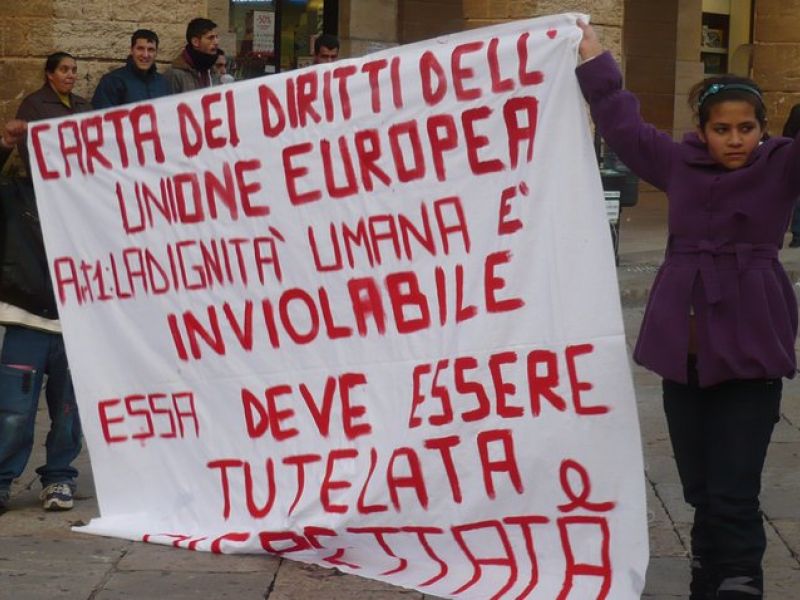 CARTA DEI DIRITTI DELL'
UNIONE EUROPEA
A#1: LA DIGNITÀ UMANA E'
INVIOLABILE
ESSA DEVE ESSERE
TUTELATA e
RISPETTATA
-50%